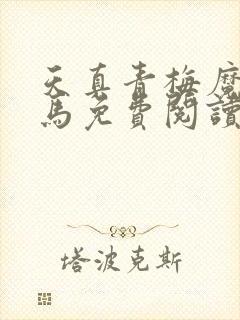 天真青梅魔
馬免費閱讀
塔波克斯